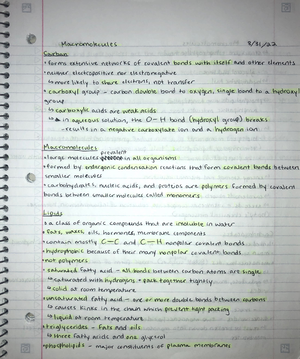 Macromolecules 8/31/22
Carbon
• forms extensive networks of covalent bonds with itself and other elements
• neither electropositive nor electronegative
↳ more likely to share electrons, not transfer
• carboxyl group - carbon double bond to oxygen, single bond to a hydroxyl
group
↳ carboxylic acids are weak acids
↳ in aqueous solution, the O-H bond (hydroxyl group) breaks
- results in a negative carboxylate ion and a hydrogen ion
Macromolecules
prevalent
• large molecules in all organisms
• formed by condensation reactions that form covalent bonds between
smaller molecules
• carbohydrates, nucleic acids, and proteins are polymers formed by covalent
bonds between smaller molecules called monomers
Lipids
• a class of organic compounds that are insoluble in water
• fats, waxes, oils, hormones, membrane components
• contain mostly C-C and C-H nonpolar covalent bonds
• hydrophobic because of their many nonpolar covalent bonds
• not polymers
• saturated fatty acid - all bonds between carbon atoms are single
↳ saturated with hydrogens - pack together tightly
↳ solid at room temperature
• unsaturated fatty acid - one or more double bonds between carbons
↳ causes kinks in the chain which prevent tight packing
↳ liquid at room temperature
• triglycerides - fats and oils
↳ three fatty acids and one glycerol
• phospholipids - major constituents of plasma membranes